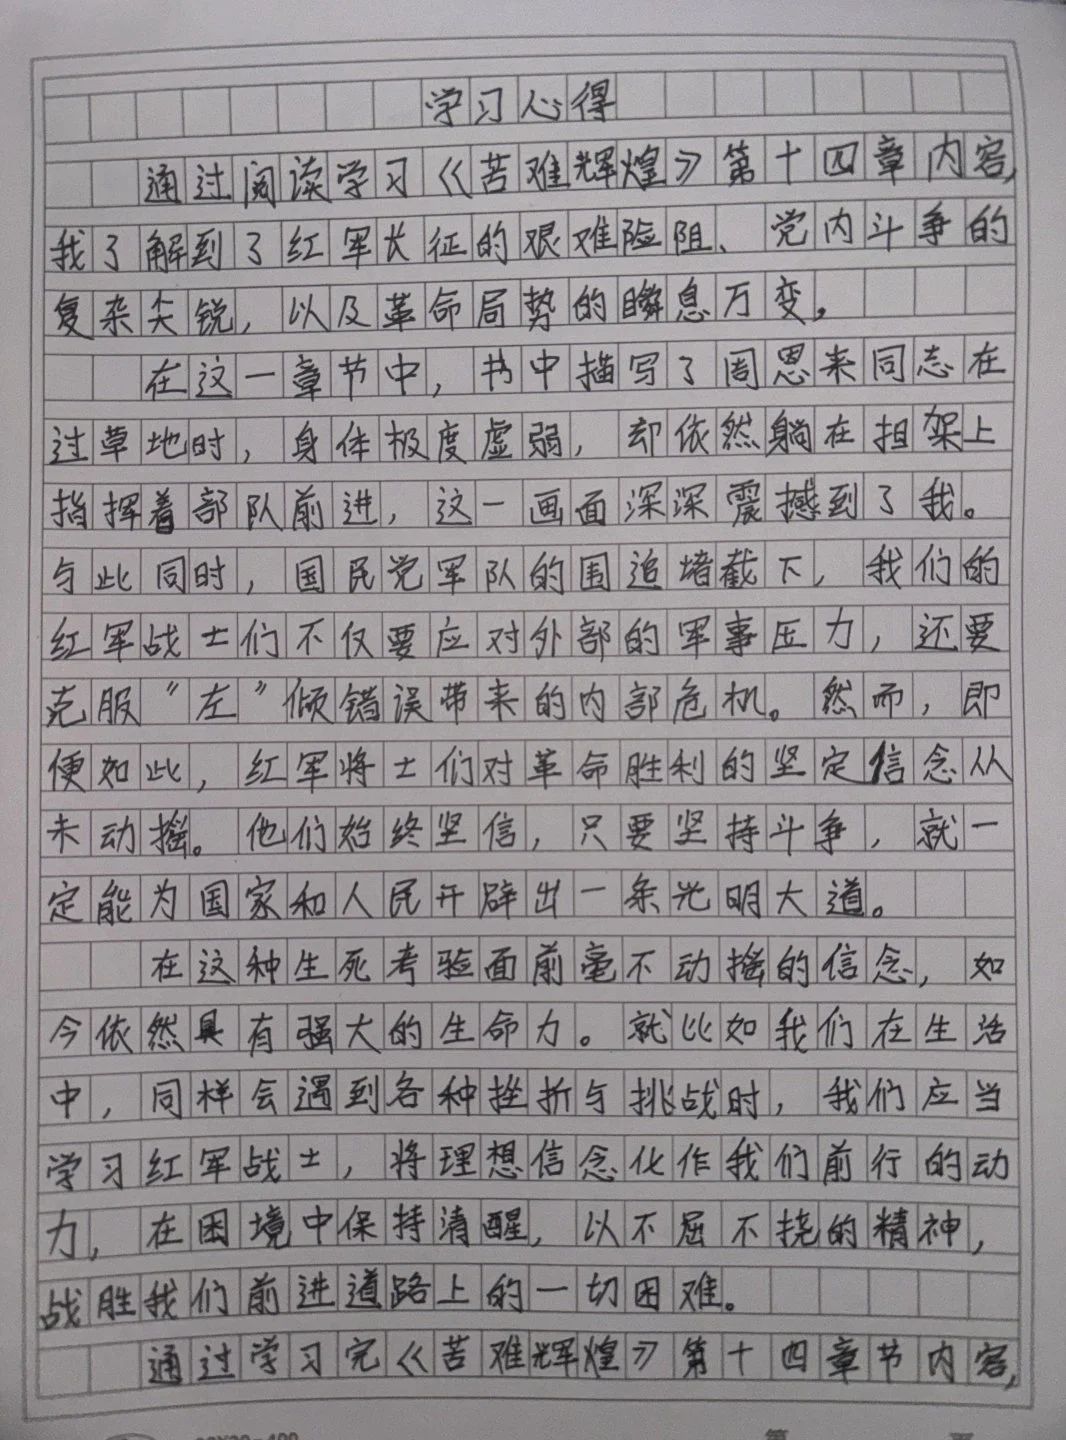 学习心得
通过阅读学习《苦难辉煌》第十四章内容,
我了解到了红军长征的艰难险阻、党内斗争的
复杂尖锐,以及革命局势的瞬息万变。
在这一章节中,书中描写了周恩来同志在
过草地时,身体极度虚弱,却依然躺在担架上
指挥着部队前进,这一画面深深震撼到了我。
与此同时,国民党军队的围追堵截下,我们的
红军战士们不仅要应对外部的军事压力,还要
克服“左”倾错误带来的内部危机。然而,即
便如此,红军将士们对革命胜利的坚定信念从
未动摇。他们始终坚信,只要坚持斗争,就一
定能为国家和人民开辟出一条光明大道。
在这种生死考验面前毫不动摇的信念,如
今依然具有强大的生命力。就比如我们在生活
中,同样会遇到各种挫折与挑战时,我们应当
学习红军战士,将理想信念化作我们前行的动
力,在困境中保持清醒,以不屈不挠的精神,
战胜我们前进道路上的一切困难。
通过学习完《苦难辉煌》第十四章节内容,